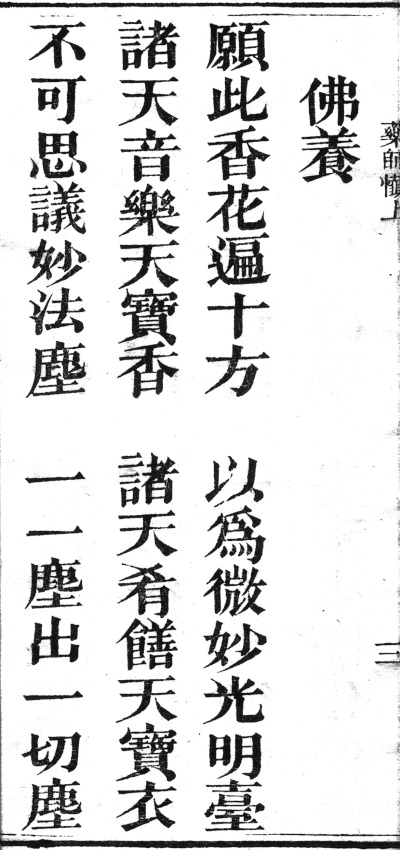 藥師懺上
三
佛養
願此香花遍十方 以爲微妙光明臺
諸天音樂天寶香 諸天肴饍天寶衣
不可思議妙法塵 一一塵出一切塵